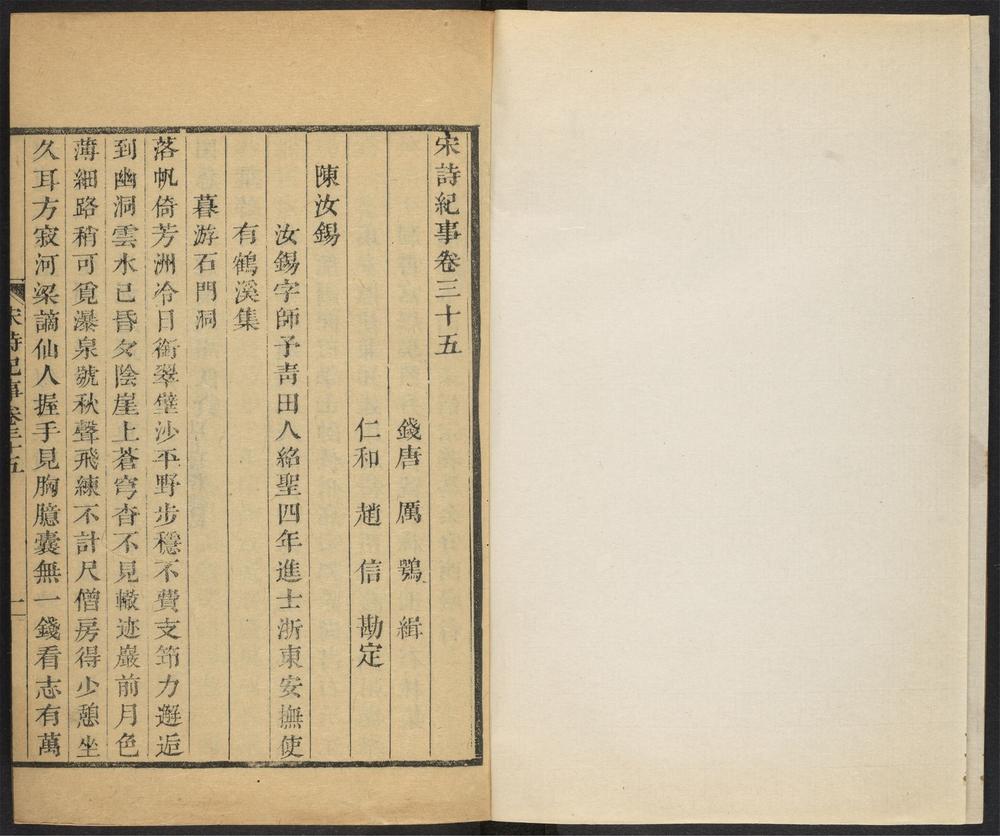 宋詩紀事卷三十五
錢唐 厲 鶚 緝
仁和 趙 信 勘定
陳汝錫
汝錫字師予青田人紹聖四年進士浙東安撫使
有鶴溪集
暮游石門洞
落帆倚芳洲冷日銜翠壁沙平野步穩不費支筇力邂逅
到幽洞雲水已昏夕陰崖上蒼穹杳不見轍迹巖前月色
薄細路稍可覓瀑泉號秋聲飛練不計尺僧房得少憩坐
久耳方寂河梁謫仙人握手見胸臆囊無一錢看志有萬
宋詩紀事卷三十五
一